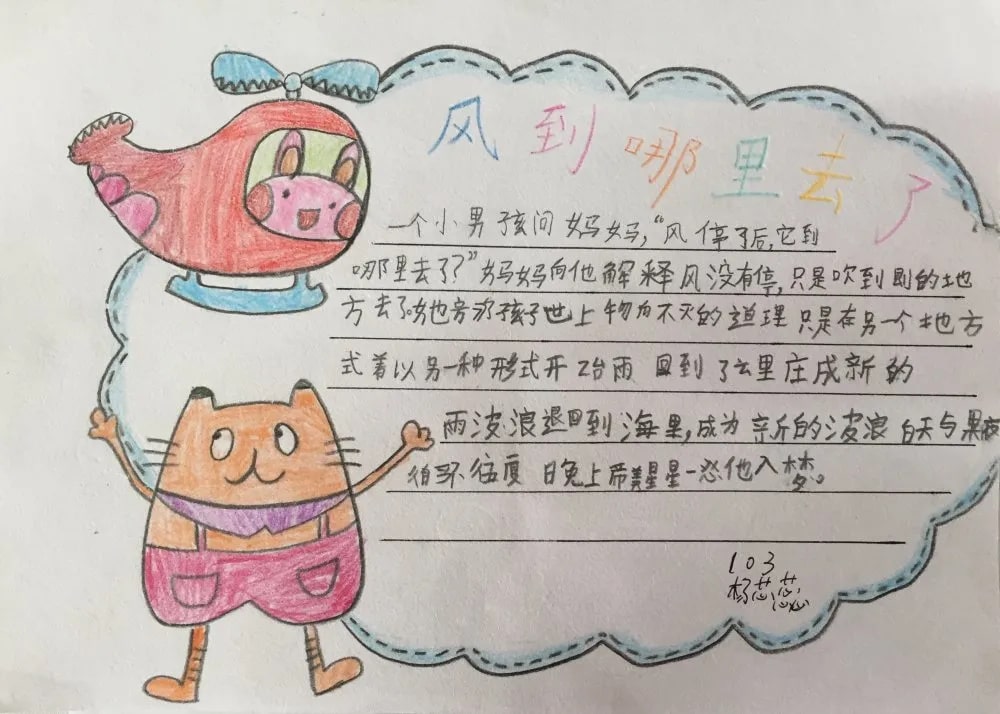 风到哪里去了
一个小男孩问妈妈,“风停了后,它到
哪里去了?”妈妈向他解释风没有停,只是吹到别的地
方去了她告诉孩子世上物为不灭的道理只是在另一个地方
式着以另一种形式开台雨回到了云里庄成新的
雨波浪退回到海里,成为新的波浪白天与黑夜
循环往复 日免上希美星星一恣他入梦。
103
杨芯蕊